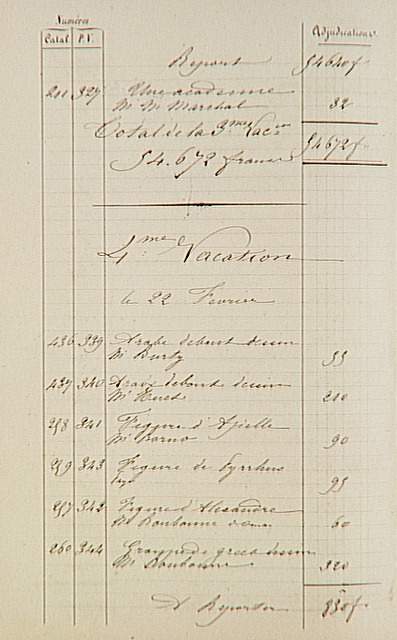 Numéros
Catal. P.V. Adjudications
Report 54640f
211 327 Une académie
Mr M. Marchal 32
Total de la 3me Vacon 54672f
54.672 francs
4me Vacation
le 22 Février
436 339 Arabe debout dessin
Mr Burty 55
437 340 Arabe debout dessin
Mr Huet 210
258 341 Figure d'
Mr 90
259 343 Figure de Pyrrhus
95
257 342 Figure d'Alexandre
Mr 60
260 344 grec dessin
Mr 320
A Reporter 830f